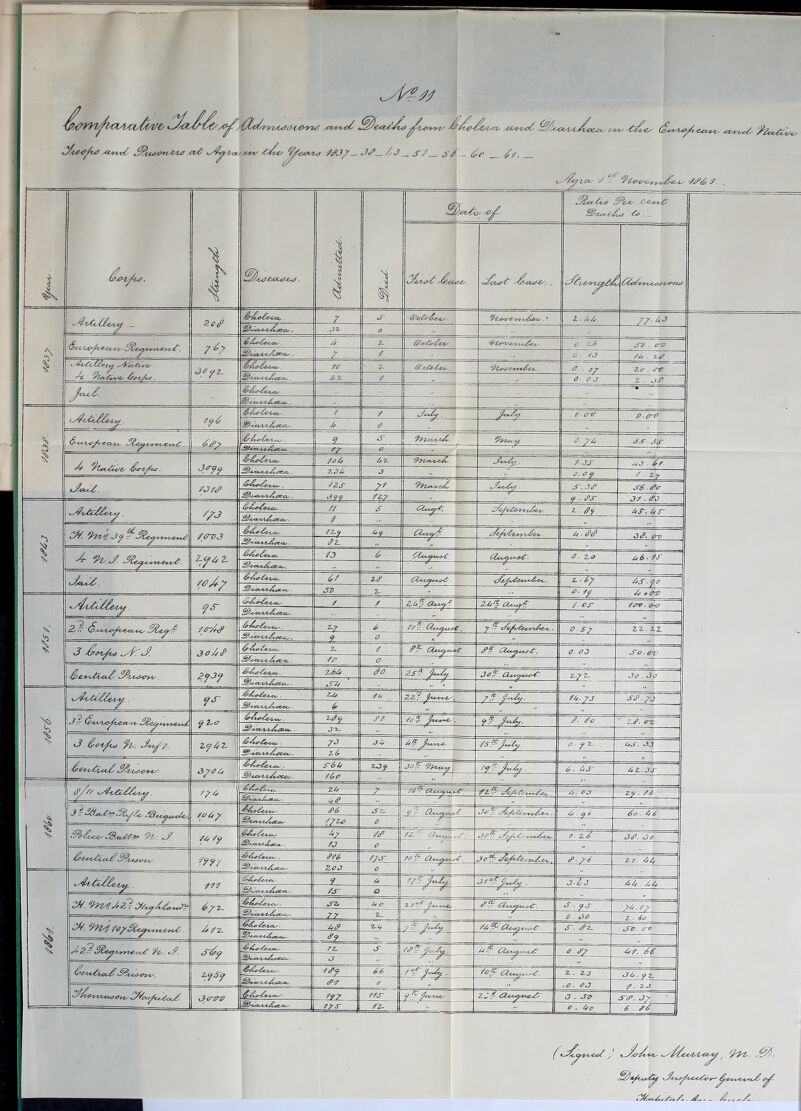 No 11
Comparative Table of Admissions and Deaths from Cholera and Diarrhœa in the European and Native
Troops and Prisoners at Agra in the Years 1837_38_43_51_56_60_61._
Agra 1st November 1861.
Year Corps. Strength. Diseases. Admitted. Died. Date of Ratio Per cent Deaths to._
First Case Last Case. Strength Admissions
1837 Artillery _ 208 Cholera 7 5 October November. 2.44. 77.43
Diarrhœa. 32 0
European Regiment. 767 Cholera 4 2 October November. 0.26 50.00
Diarrhœa. 7 1 0.13 14.28
Artillery Native 4 Native Corps. 3092 Cholera 10 2 October November. 0.07 20.00
Diarrhœa. 42 1 0.03 2.38
Jail. Cholera
Diarrhœa
1838 Artillery. 196 Cholera. 1 1 July July 0.00 0.00
Diarrhœa. 4 0
European Regiment 687 Cholera. 9 5 March May 0.74 55.55
Diarrhœa. 17 0
4 Native Corps. 3099 Cholera 104 42 March July. 1.35 43.61
Diarrhœa. 234 3 0.09 1.29
Jail. 1318 Cholera. 125 71 March July. 5.38 56.80
Diarrhœa. 399 127 9.85 31.83
1843 Artillery. 173 Cholera. 11 5 Augt. September 2.89 45.45
Diarrhœa. 1
H. M's 39th Regiment 1003 Cholera 129 49 Augt. September 4.88 38.00
Diarrhœa 82
4 N. I. Regiment. 2942 Cholera. 13 6 August August. 0.20 46.15
Diarrhœa.
Jail 1047 Cholera. 61 28 August September. 2.67 45.90
Diarrhœa. 50 2 0.19 4.00
1851. Artillery 95 Cholera 1 1 24th Augt 24th Augt 1.05 100.00
Diarrhœa.
2d European Regt 1048 Cholera. 27 6 10th August. 7th September. 0.57 22.22
Diarrhœa. 9 0
3 Corps N. I. 3048 Cholera 2 1 8th August. 8th August. 0.03 50.00
Diarrhœa. 10 0
Central Prison. 2939 Cholera 264 80 25th July 30th August 2.72 30.30
Diarrhœa. 54
1856. Artillery. 95 Cholera. 24 14 22d June. 7th July. 14.73 58.73
Diarrhœa. 6
3d European Regiment 920 Cholera 289 81 10th June. 9th July. 8.80 28.00
Diarrhœa. 32
3 Corps N. Infy. 2942 Cholera 73 34 4th June 15th July 0.92 45.33
Diarrhœa. 26
Central Prison 3704 Cholera 564 239 30th May 19th July. 6.45 42.35
Diarrhœa. 160
1860 8/11 Artillery 174 Cholera 24 7 16th August 12th September 4.03 29.16
Diarrhœa. 48
3d Battn Rifle Brigade. 1047 Cholera. 86 52 9th August 30th September. 4.96 60.46
Diarrhœa 1720 0
Police Battn N. I. 1419 Cholera 47 18 12th August 30th September 1.26 38.30
Diarrhœa. 13 0
Central Prison 1991 Cholera. 816 175 10th August 30th September. 8.76 21.44
Diarrhœa 203 0
1861. Artillery 111 Cholera 9 4 17th July 31st July. 3.63 44.44
Diarrhœa. 15 0
H. M's 42d Highlandrs 672 Cholera. 54 40 21st June 8th August. 5.95 74.07
Diarrhœa 77 2 0.30 2.60
H. M's 107 Regiment 412 Cholera. 48 24 7th July 14th August 5.82 50.00
Diarrhœa 89
42d Regiment N. I. 569 Cholera 12 5 18th July 4th August 0.87 41.66
Diarrhœa. 3
Central Prison. 2959 Cholera. 189 66 1st July. 10th August. 2.23 34.92
Diarrhœa 81 1 0.03 1.23
Thomason Hospital 3000 Cholera 197 115 9th June 20th August 3.50 58.37
Diarrhœa. 175 12 0.40 6.86
(Signed; John Murray, M. D.
Deputy Inspector General of
Hospitals, Agra